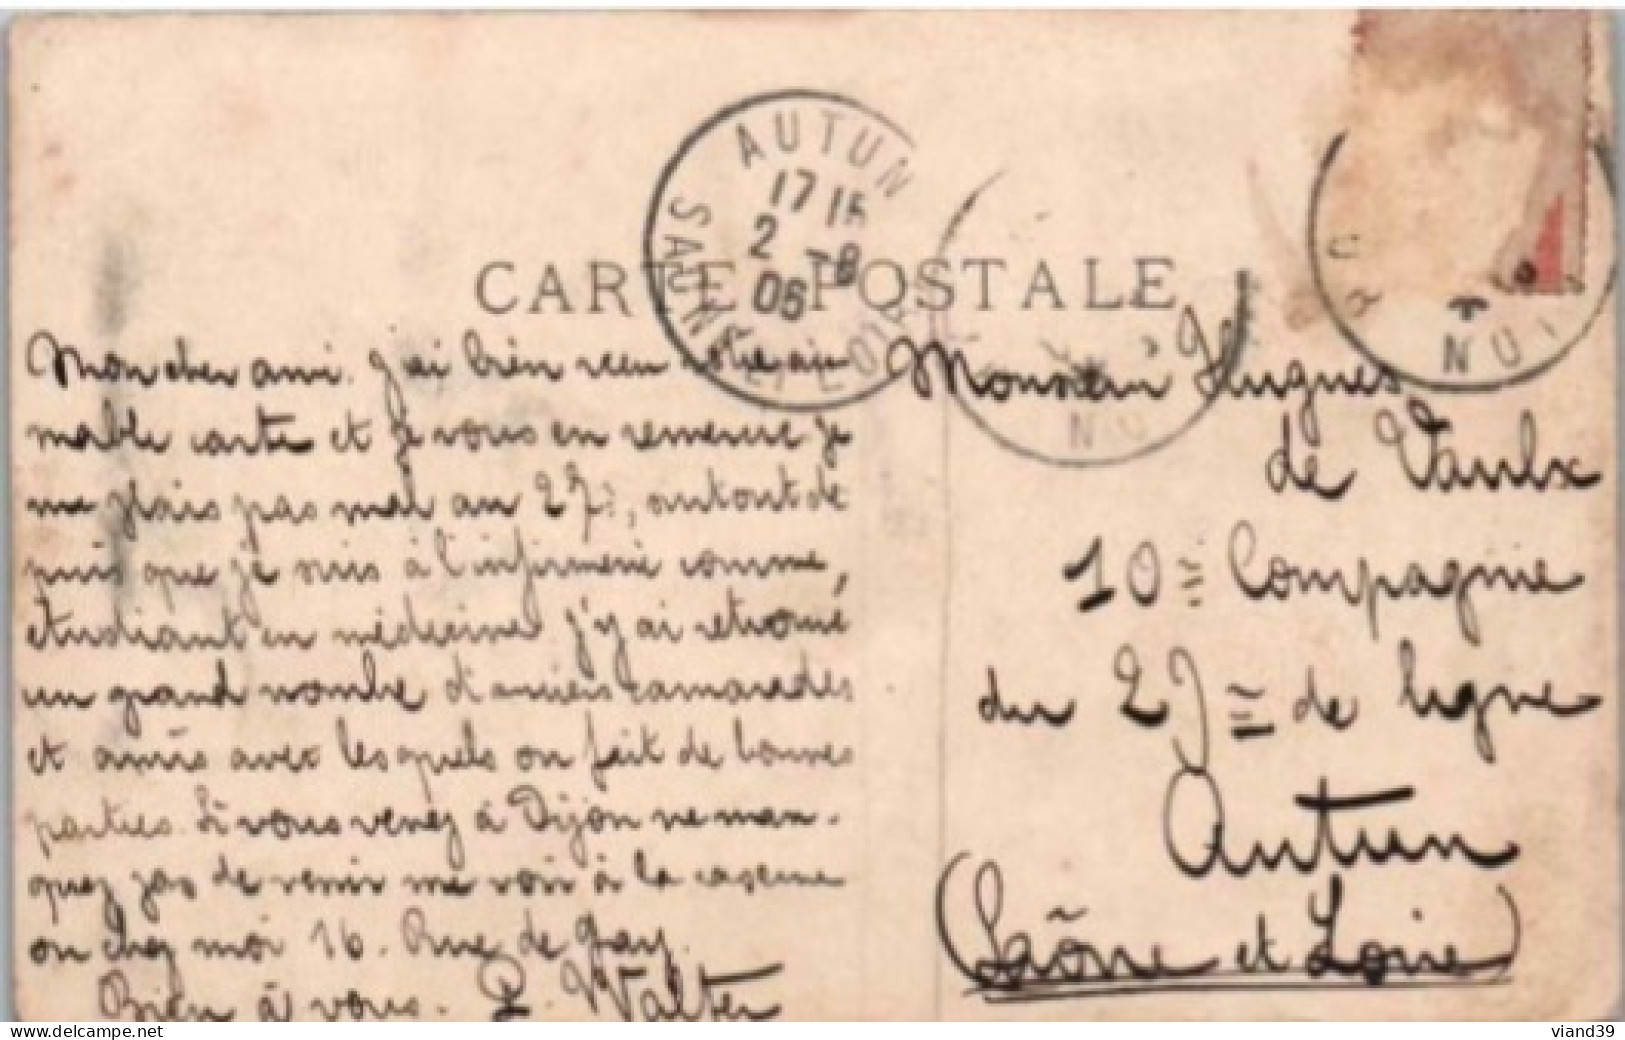 CARTE POSTALE
AUTUN
17 15
2 -8
05
SAÔNE ET LOIRE
NUI
NU
Mon cher ami. J'ai bien recu votre ai
mable carte et je vous en remercie je
me plais pas mal au 27e, surtout de
puis que je suis à l'infirmerie comme,
etudiant en médecine j'y ai retrouvé
un grand nombre d'anciens camarades
et amis avec lesquels on fait de bonnes
parties. Si vous venez à Dijon ne man-
quez pas de venir me voir à la caserne
ou chez moi 16. Rue de Gray.
Bien à vous. P. Walter
Monsieur Hugues
de Vaulx
10e Compagnie
du 29e de ligne
Autun
(Saône et Loire)
www.delcampe.net
viand39